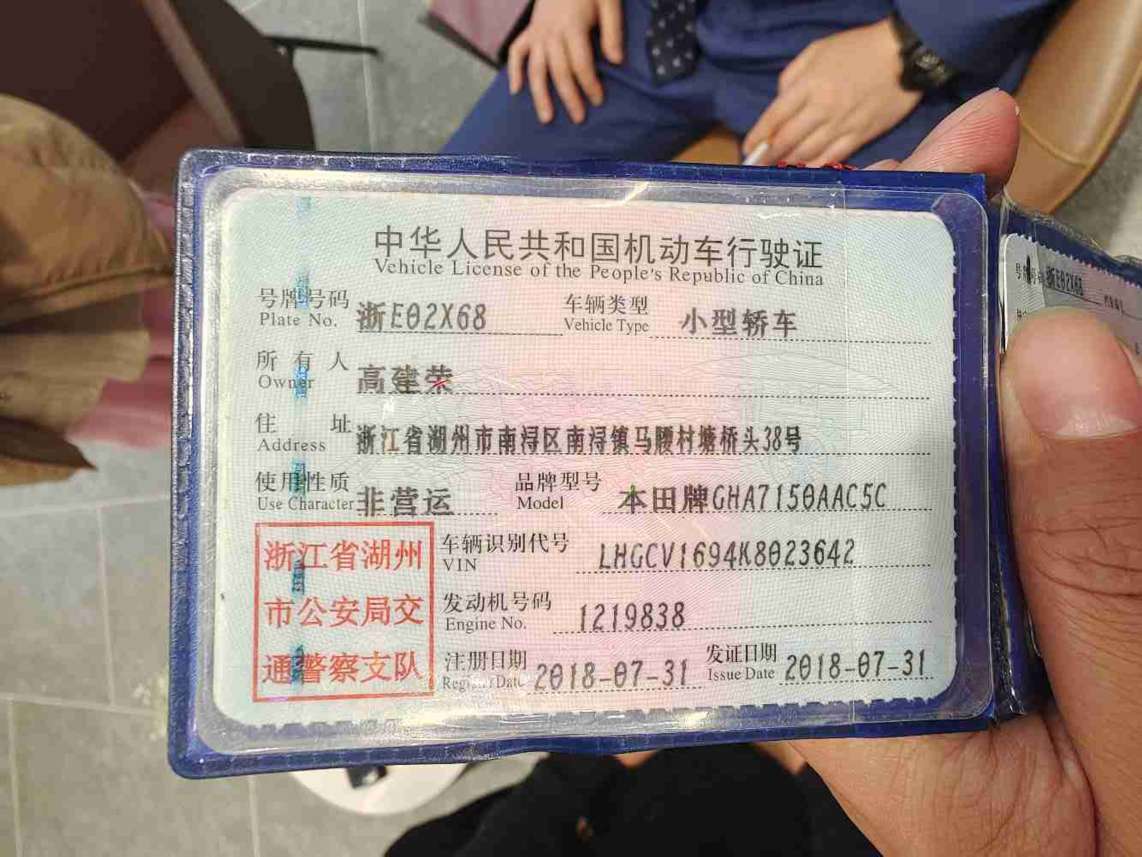 中华人民共和国机动车行驶证
Vehicle License of the People's Republic of China
号牌号码 浙E02X68 车辆类型 小型轿车
Plate No. Vehicle Type
所有人 高建荣
Owner
住址 浙江省湖州市南浔区南浔镇马腰村塘桥头38号
Address
使用性质 非营运 品牌型号 本田牌GHA7150AAC5C
Use Character Model
浙江省湖州
市公安局交
通警察支队
车辆识别代号 LHGCV1694K8023642
VIN
发动机号码 1219838
Engine No.
注册日期 2018-07-31 发证日期 2018-07-31
Register Date Issue Date
号牌号码 浙E02X68